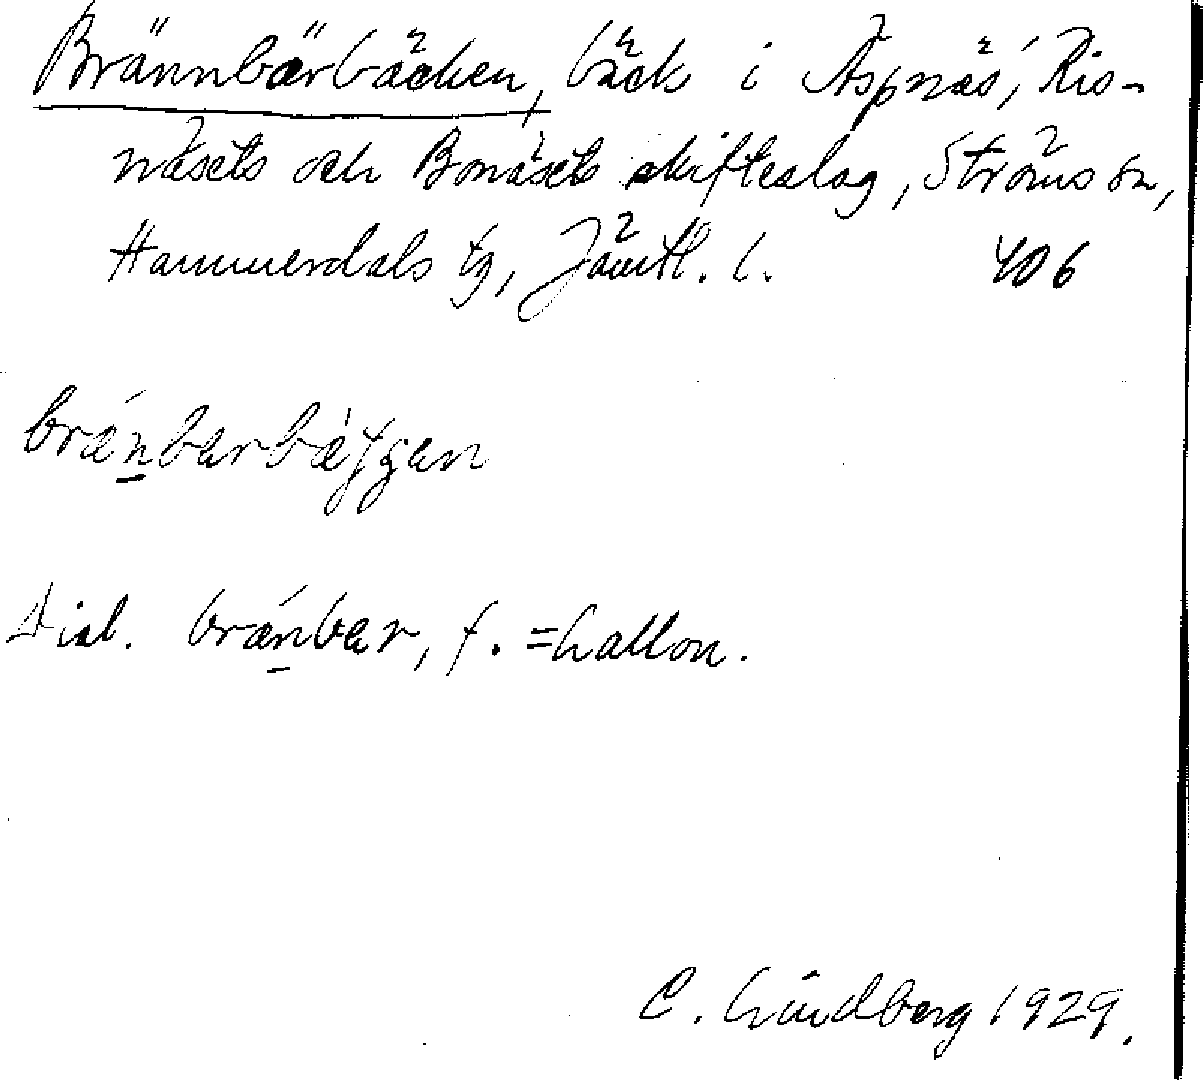 Brännbärbäcken, bäck i Äspnäs, Ris-
näsets och Bonäsets skifteslag, Ströms sn,
Hammerdals tg, Jämtl. l. 406
bræ´n̲barbæ`ʃgen
Dial. bræ´n̲bær, f. = hallon.
C. Lindberg 1929.